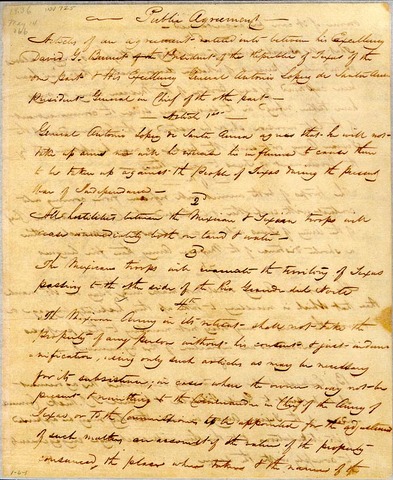 1836
May 14
No 125
Public Agreement
Articles of an agreement entered into between his Excellency
David G. Burnet President of the Republic of Texas of the
one part & His Excellency General Antonio Lopez de Santa Anna
President General in Chief of the other part —
Article 1st —
General Antonio Lopez de Santa Anna agrees that he will not
take up arms nor will he his influence to cause them
to be taken up against the People of Texas during the present
War of Independence —
2
All hostilities between the Mexican & Texian troops will
cease immediately both on land & water —
3
The Mexican troops will evacuate the territory of Texas
passing to the other side of the Rio Grande del Norte
4th
The Mexican Army in its retreat shall not take the
property of any person without his consent & just indem-
nification, using only such articles as may be necessary
for its subsistence, in cases where the owner may not be
present & remitting to the Commander in Chief of the Army of
Texas or to the Commissioners to be appointed for the adjustment
of such matters an account of the value of the property
consumed, the place where taken & the name of the